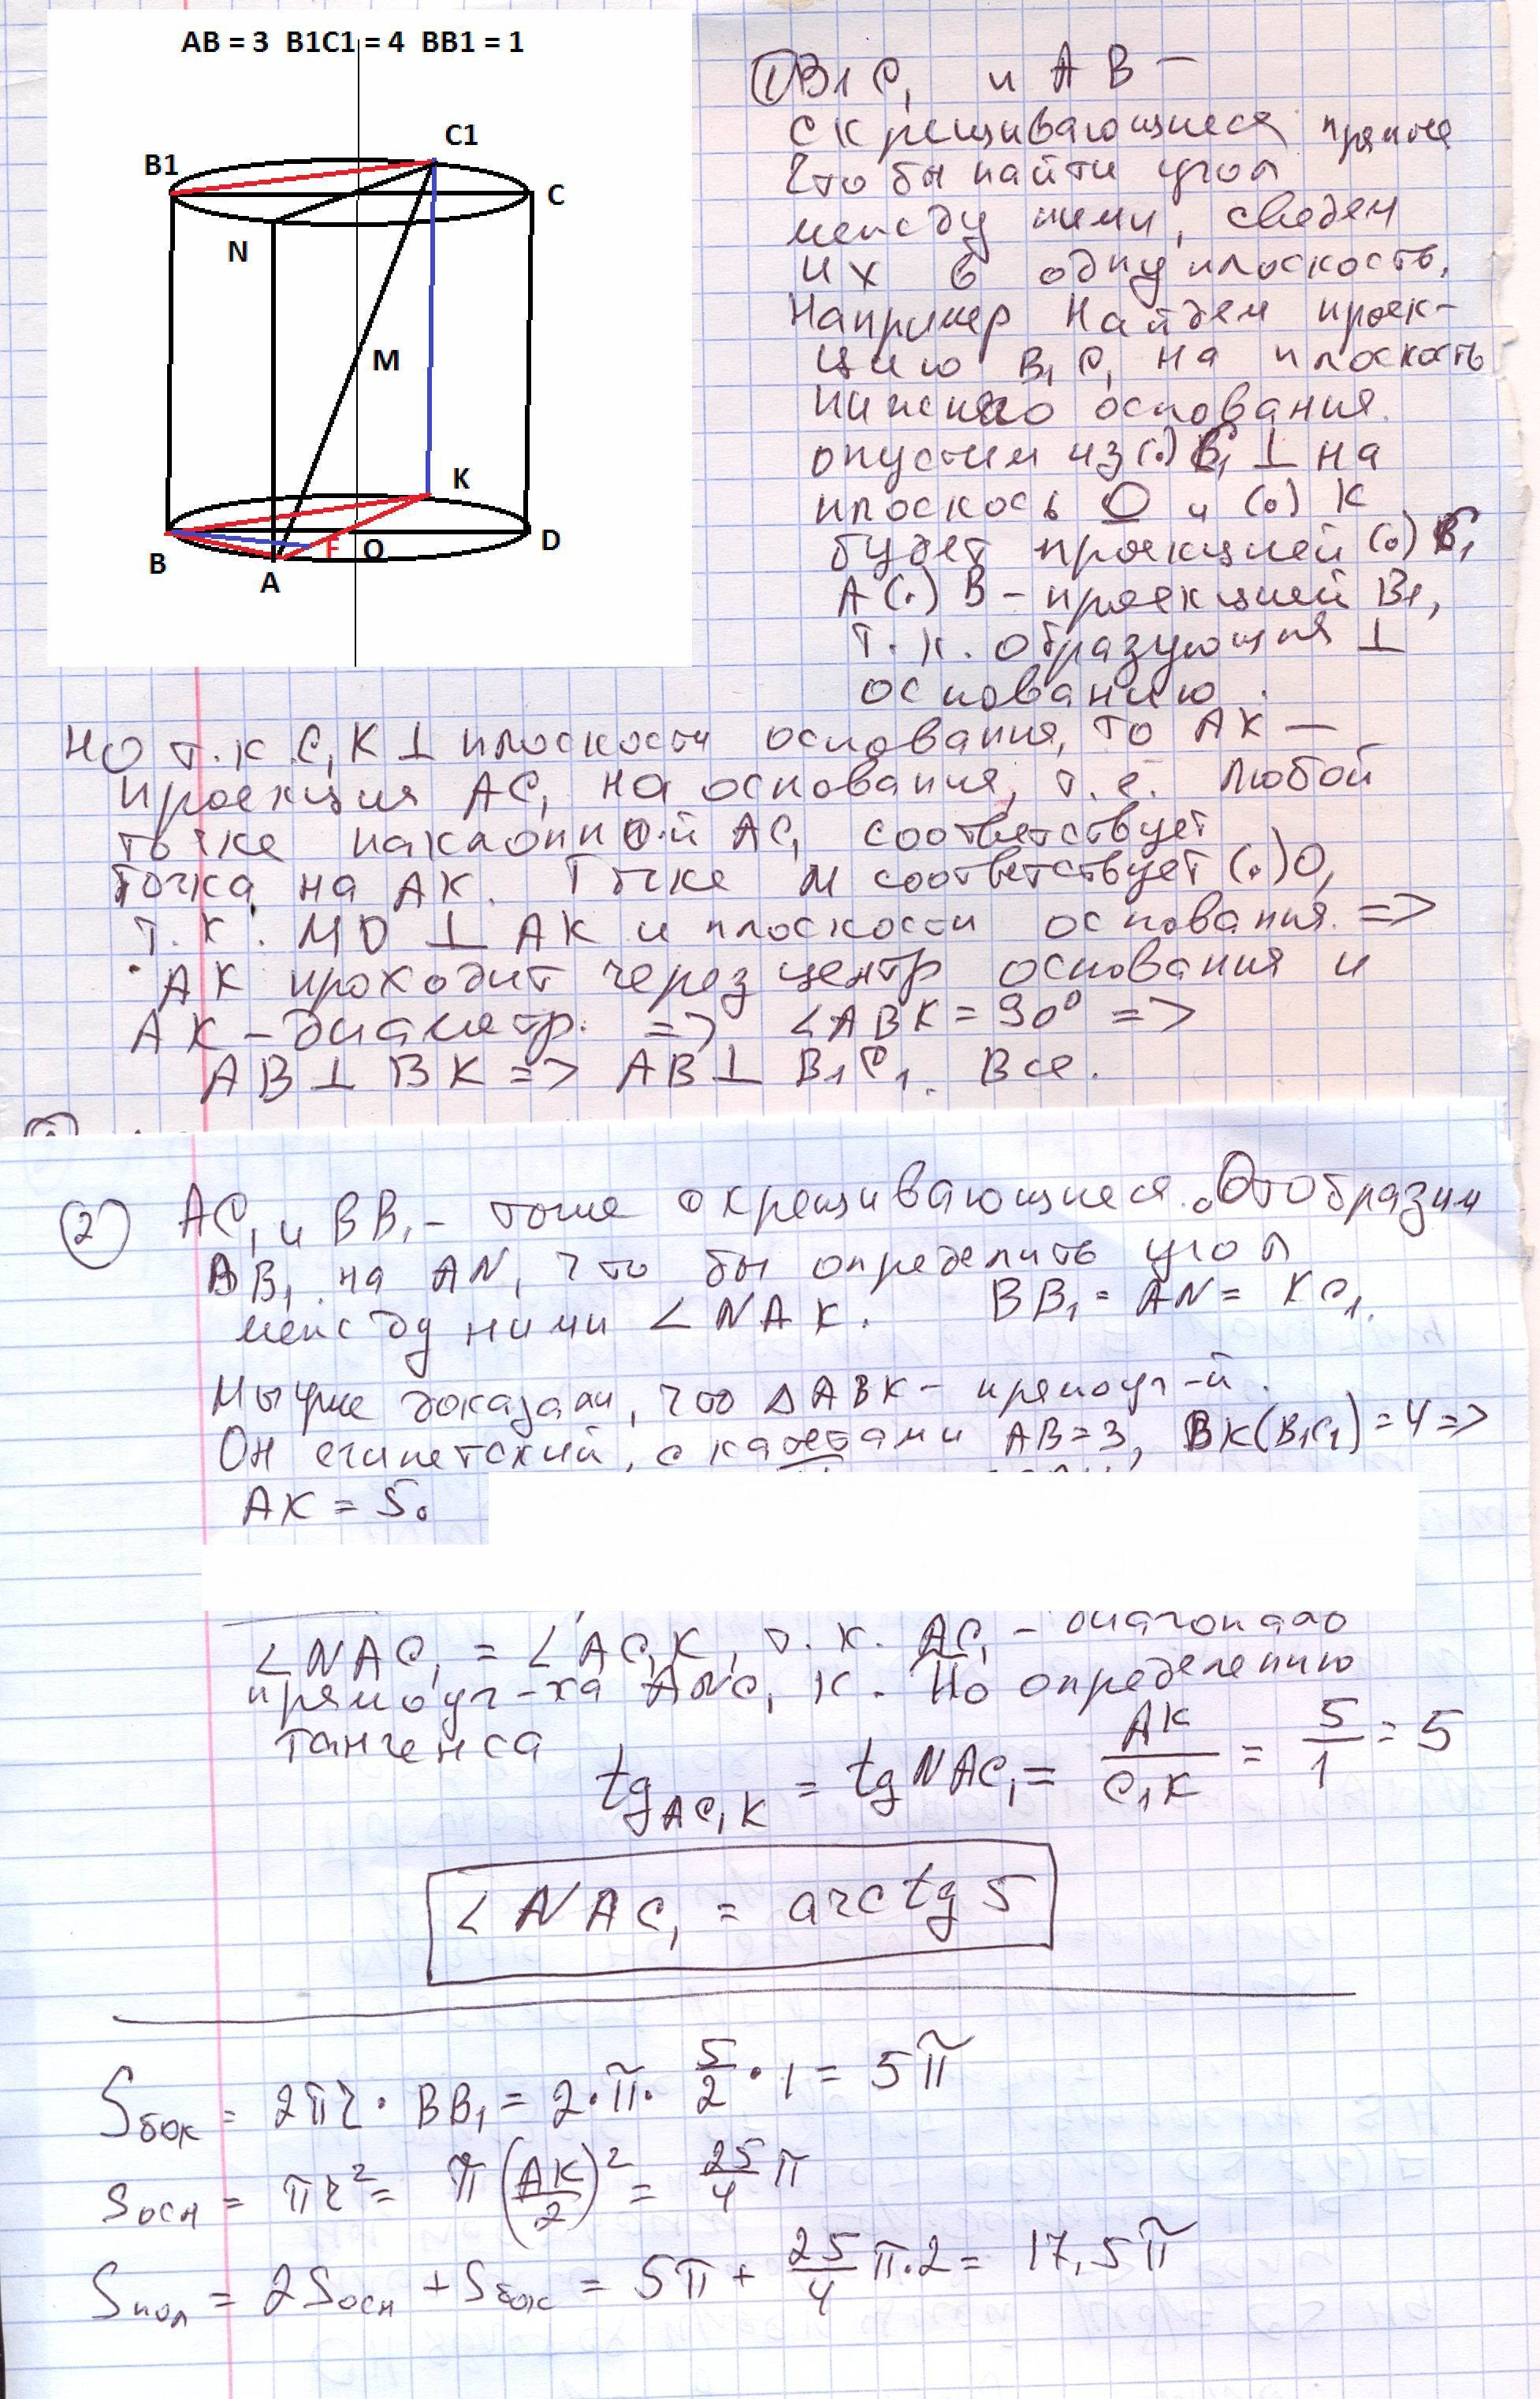 AB = 3 B1C1 = 4 BB1 = 1
C1
B1
C
N
M
K
B
F
O
D
A
① B1C1 и AB —
скрещивающиеся прямые
Что бы найти угол
между ними, сведем
их в одну плоскость.
Например найдем проек-
цию B1C1 на плоскость
нижнего основания.
опустим из (.) C1 ⊥ на
плоскось O и (.) K
будет проекцией (.) C1
А (.) B – проекцией B1,
т.к. образующая ⊥
основанию.
Но т.к C1K ⊥ плоскости основания, то AK —
проекция AC1 на основания, т.е. любой
точке наклонной AC1 соответствует
точка на AK. Точке M соответствует (.) O,
т.к. MO ⊥ AK и плоскости основания. =>
AK проходит через центр основания и
AK – диаметр. => ∠ABK = 90° =>
AB ⊥ BK => AB ⊥ B1C1. Все.
② AC1 и BB1 – тоже скрещивающиеся. Отобразим
BB1 на AN, что бы определить угол
между ними ∠NAK. BB1 = AN = KC1.
Мы уже доказали, что ΔABK – прямоуг-й.
Он египетский, с катетами AB = 3, BK(B1C1) = 4 =>
AK = 5.
∠NAC1 = ∠AC1K, т.к. AC1 – диагональ
прямоуг-ка ANC1K. По определению
тангенса
tg AC1K = tg NAC1 = AK/C1K = 5/1 = 5
∠NAC1 = arctg 5
Sбок = 2πr · BB1 = 2 · π · 5/2 · 1 = 5π
Sосн = πr² = π(AK/2)² = 25/4 π
Sпол = 2Sосн + Sбок = 5π + 25/4 π · 2 = 17,5π